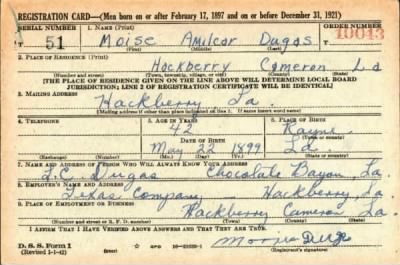 REGISTRATION CARD—(Men born on or after February 17, 1897 and on or before December 31, 1921)
SERIAL NUMBER 1. NAME (Print) ORDER NUMBER
T 51 Moise Amilcar Dugas 10043
(First) (Middle) (Last)
2. PLACE OF RESIDENCE (Print)
Hackberry Cameron La
(Number and street) (Town, township, village, or city) (County) (State)
[THE PLACE OF RESIDENCE GIVEN ON THE LINE ABOVE WILL DETERMINE LOCAL BOARD
JURISDICTION; LINE 2 OF REGISTRATION CERTIFICATE WILL BE IDENTICAL]
3. MAILING ADDRESS
Hackberry La.
[Mailing address if other than place indicated on line 2. If same insert word same]
4. TELEPHONE 5. AGE IN YEARS 6. PLACE OF BIRTH
42 Rayne
DATE OF BIRTH (Town or county)
May 22 1899 La.
(Exchange) (Number) (Mo.) (Day) (Yr.) (State or country)
7. NAME AND ADDRESS OF PERSON WHO WILL ALWAYS KNOW YOUR ADDRESS
Dugas Chocolate Bayou, La.
8. EMPLOYER'S NAME AND ADDRESS
Texas Company Hackberry, La
9. PLACE OF EMPLOYMENT OR BUSINESS
Hackberry Cameron La.
(Number and street or R. F. D. number) (Town) (County) (State)
I AFFIRM THAT I HAVE VERIFIED ABOVE ANSWERS AND THAT THEY ARE TRUE.
D. S. S. Form 1
(Revised 1-1-42) GPO